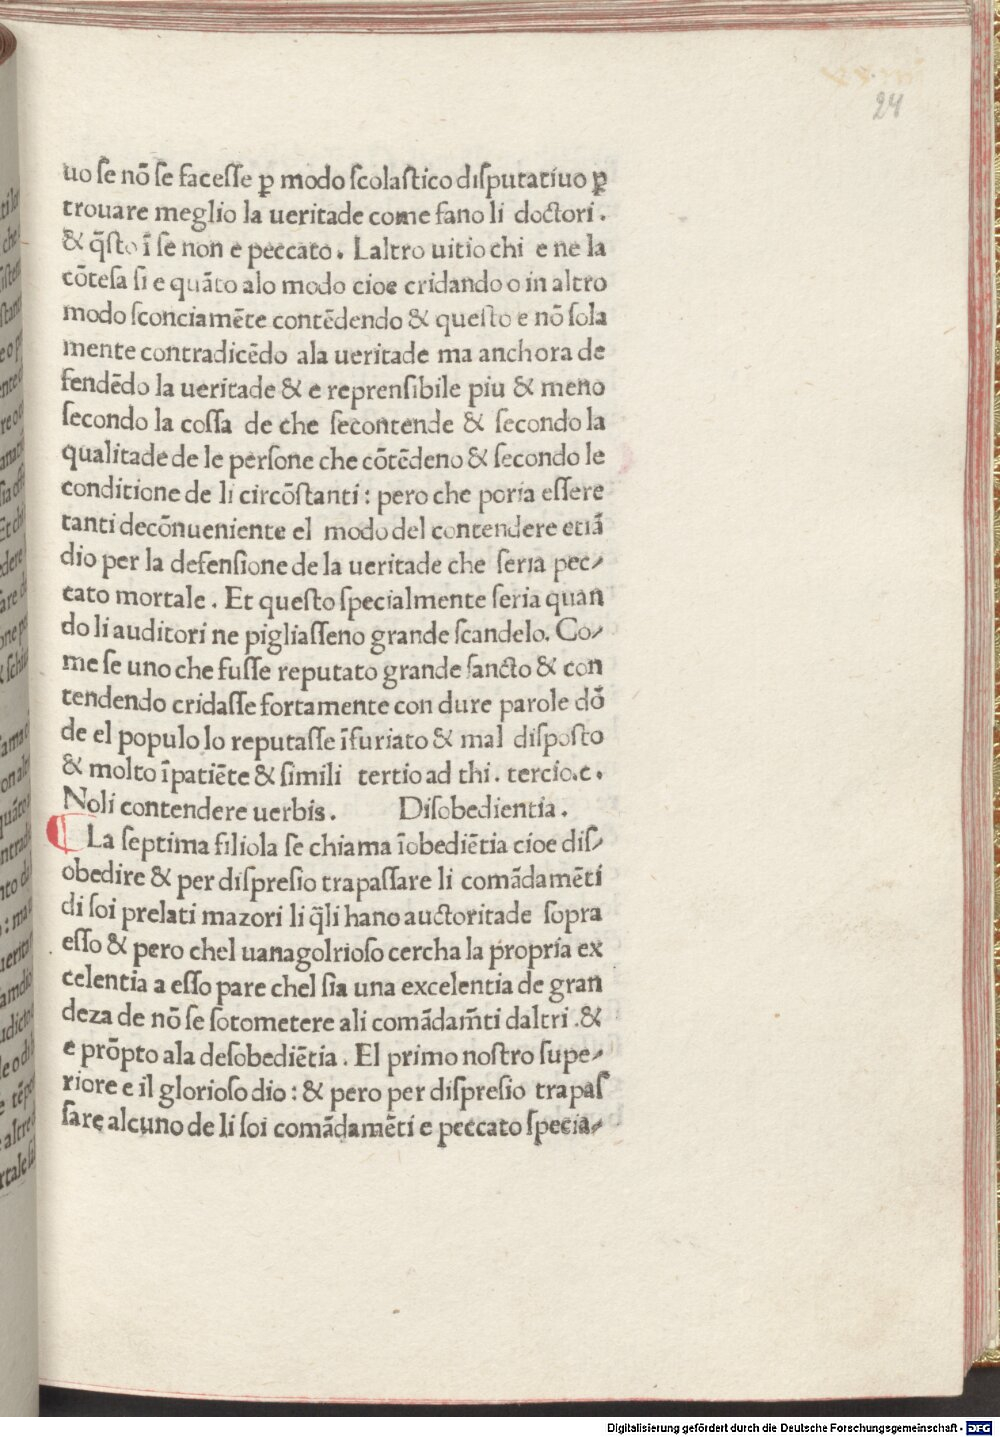 24
uo se nō se facesse ꝑ modo scolastico disputatiuo ꝑ
trouare meglio la ueritade come fano li doctori.
& q̄sto ī se non e peccato. Laltro uitio chi e ne la
cōtesa si e quāto alo modo cioe cridando o in altro
modo sconciamēte contēdendo & questo e nō sola
mente contradicēdo ala ueritade ma anchora de
fendēdo la ueritade & e reprensibile piu & meno
secondo la cossa de che secontende & secondo la
qualitade de le persone che cōtēdeno & secondo le
conditione de li circōstanti: pero che poria essere
tanti decōnueniente el modo del contendere etiā
dio per la defensione de la ueritade che seria pec-
cato mortale. Et questo specialmente seria quan
do li auditori ne pigliasseno grande scandelo. Co-
me se uno che fusse reputato grande sancto & con
tendendo cridasse fortamente con dure parole dō
de el populo lo reputasse īfuriato & mal disposto
& molto īpatiēte & simili tertio ad thi. tercio.c.
Noli contendere uerbis. Disobedientia.
La septima filiola se chiama īobediētia cioe dis-
obedire & per dispresio trapassare li comādamēti
di soi prelati mazori li q̄li hano auctoritade sopra
esso & pero chel uanagolrioso cercha la propria ex
celentia a esso pare chel sia una excelentia de gran
deza de nō se sotometere ali comādam̄ti daltri .&
e prōpto ala desobediētia. El primo nostro supe-
riore e il glorioso dio: & pero per dispresio trapas
sare alcuno de li soi comādamēti e peccato specia-
Digitalisierung gefördert durch die Deutsche Forschungsgemeinschaft - DFG